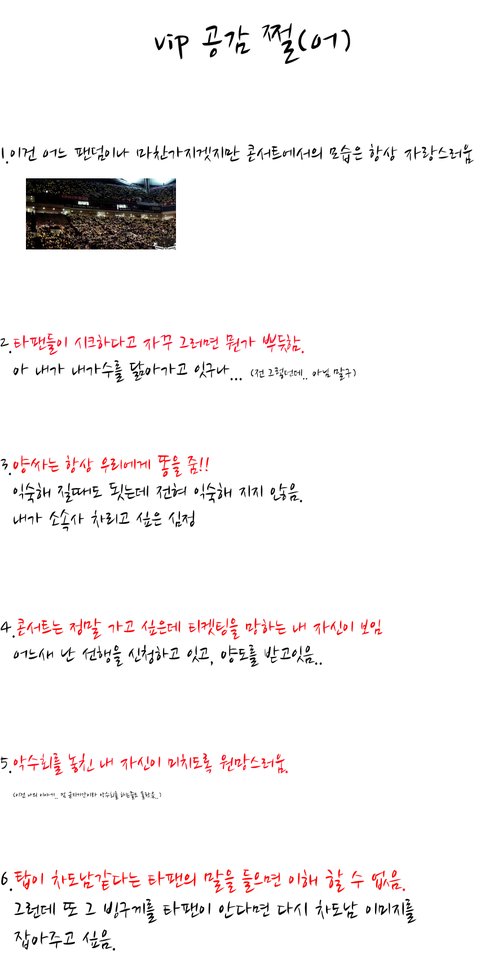 vip 공감 쩔(어)
1.이건 어느 팬덤이나 마찬가지겟지만 콘서트에서의 모습은 항상 자랑스러움
2.타팬들이 시크하다고 자꾸 그러면 뭔가 뿌듯함.
아 내가 내가수를 닮아가고 잇구나... (전 그렇던데.. 아님 말구)
3.양싸는 항상 우리에게 똥을 줌!!
익숙해 질때도 됫는데 전혀 익숙해 지지 않음.
내가 소속사 차리고 싶은 심정
4.콘서트는 정말 가고 싶은데 티켓팅을 망하는 내 자신이 보임
어느새 난 선행을 신청하고 잇고, 양도를 받고잇음..
5.악수회를 놓친 내 자신이 미치도록 원망스러움.
6.탑이 차도남같다는 타팬의 말을 들으면 이해 할 수 없음.
그런데 또 그 빙구끼를 타팬이 안다면 다시 차도남 이미지를
잡아주고 싶음.